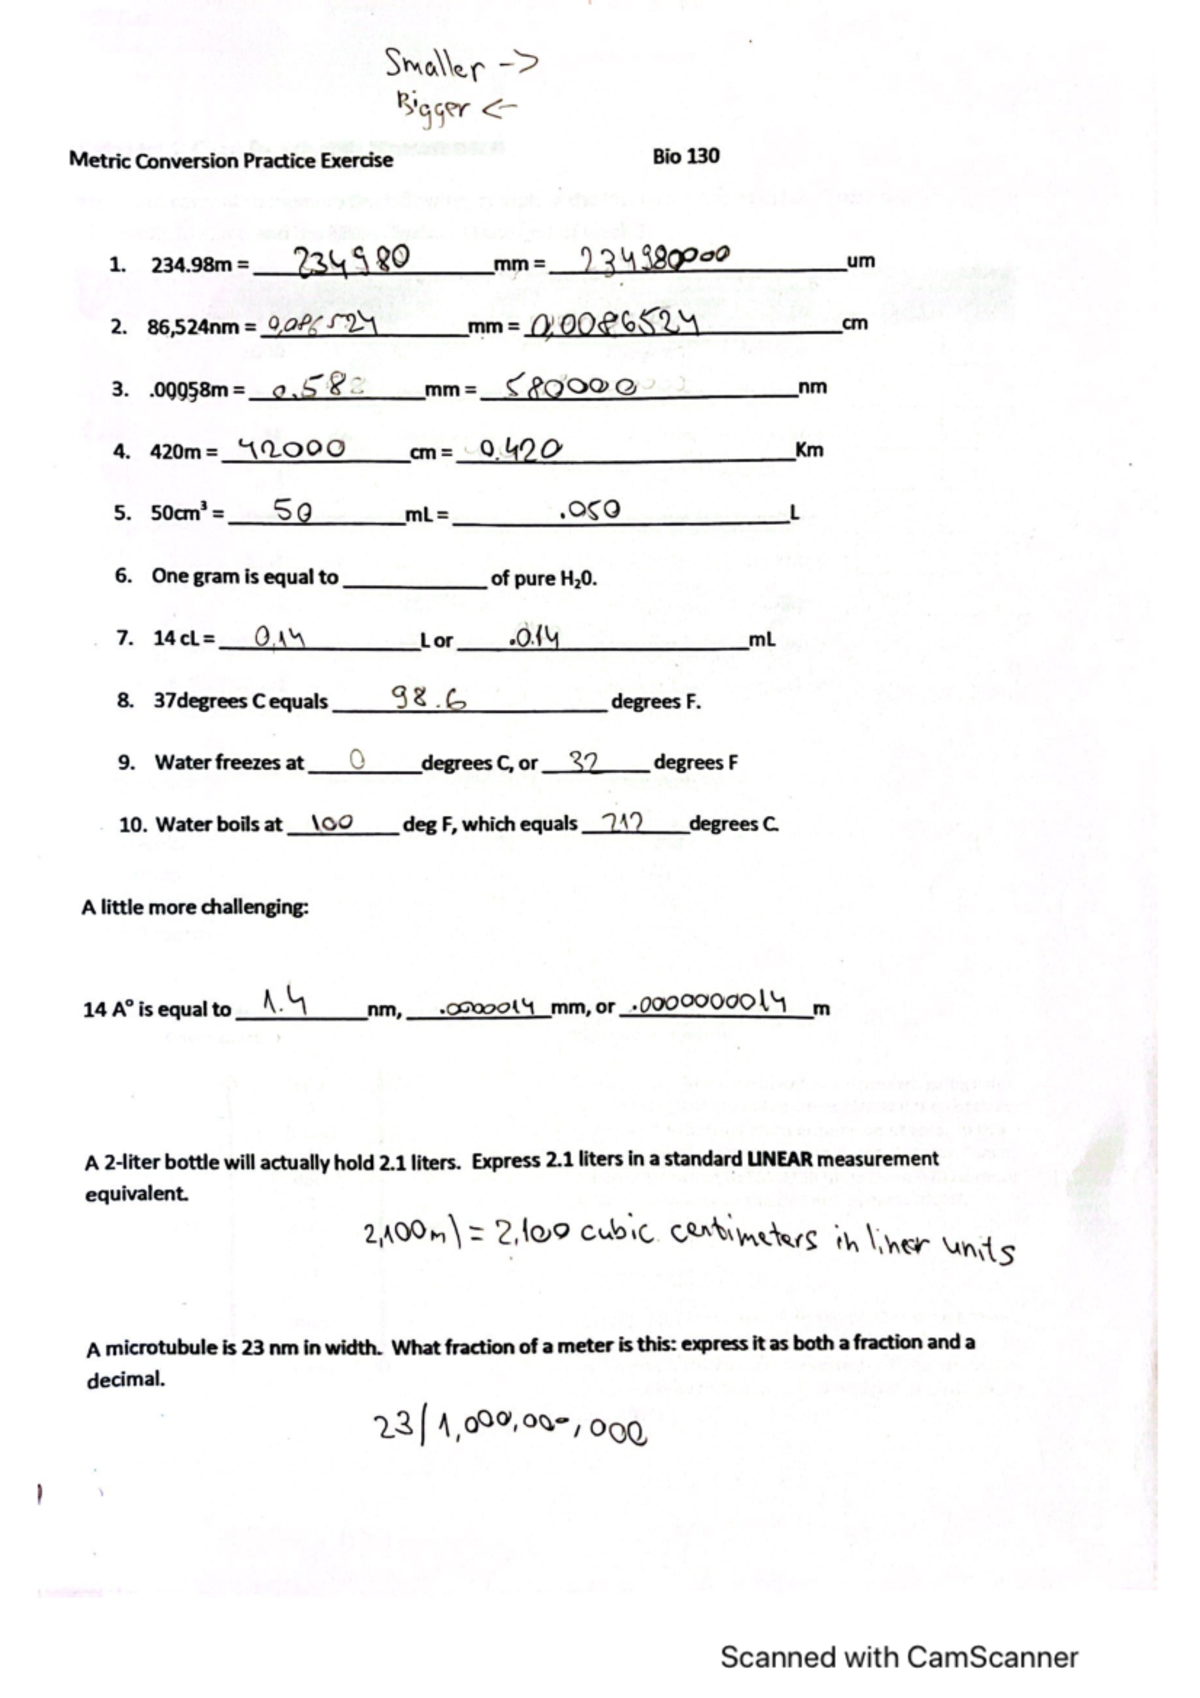 Smaller ->
Bigger <-
Metric Conversion Practice Exercise Bio 130
1. 234.98m = 234980 mm = 234980000 um
2. 86,524nm = 0,086524 mm = 0,0086524 cm
3. .00058m = 0.58 mm = 580000 nm
4. 420m = 42000 cm = 0.420 Km
5. 50cm³ = 50 mL = .050 L
6. One gram is equal to ____________ of pure H₂0.
7. 14 cL = 0,14 L or .014 mL
8. 37degrees C equals 98.6 degrees F.
9. Water freezes at 0 degrees C, or 32 degrees F
10. Water boils at 100 deg F, which equals 212 degrees C.
A little more challenging:
14 A° is equal to 1.4 nm, .0000014 mm, or .0000000014 m
A 2-liter bottle will actually hold 2.1 liters. Express 2.1 liters in a standard LINEAR measurement
equivalent.
2,100ml = 2,100 cubic centimeters in liner units
A microtubule is 23 nm in width. What fraction of a meter is this: express it as both a fraction and a
decimal.
23/1,000,000,000
Scanned with CamScanner